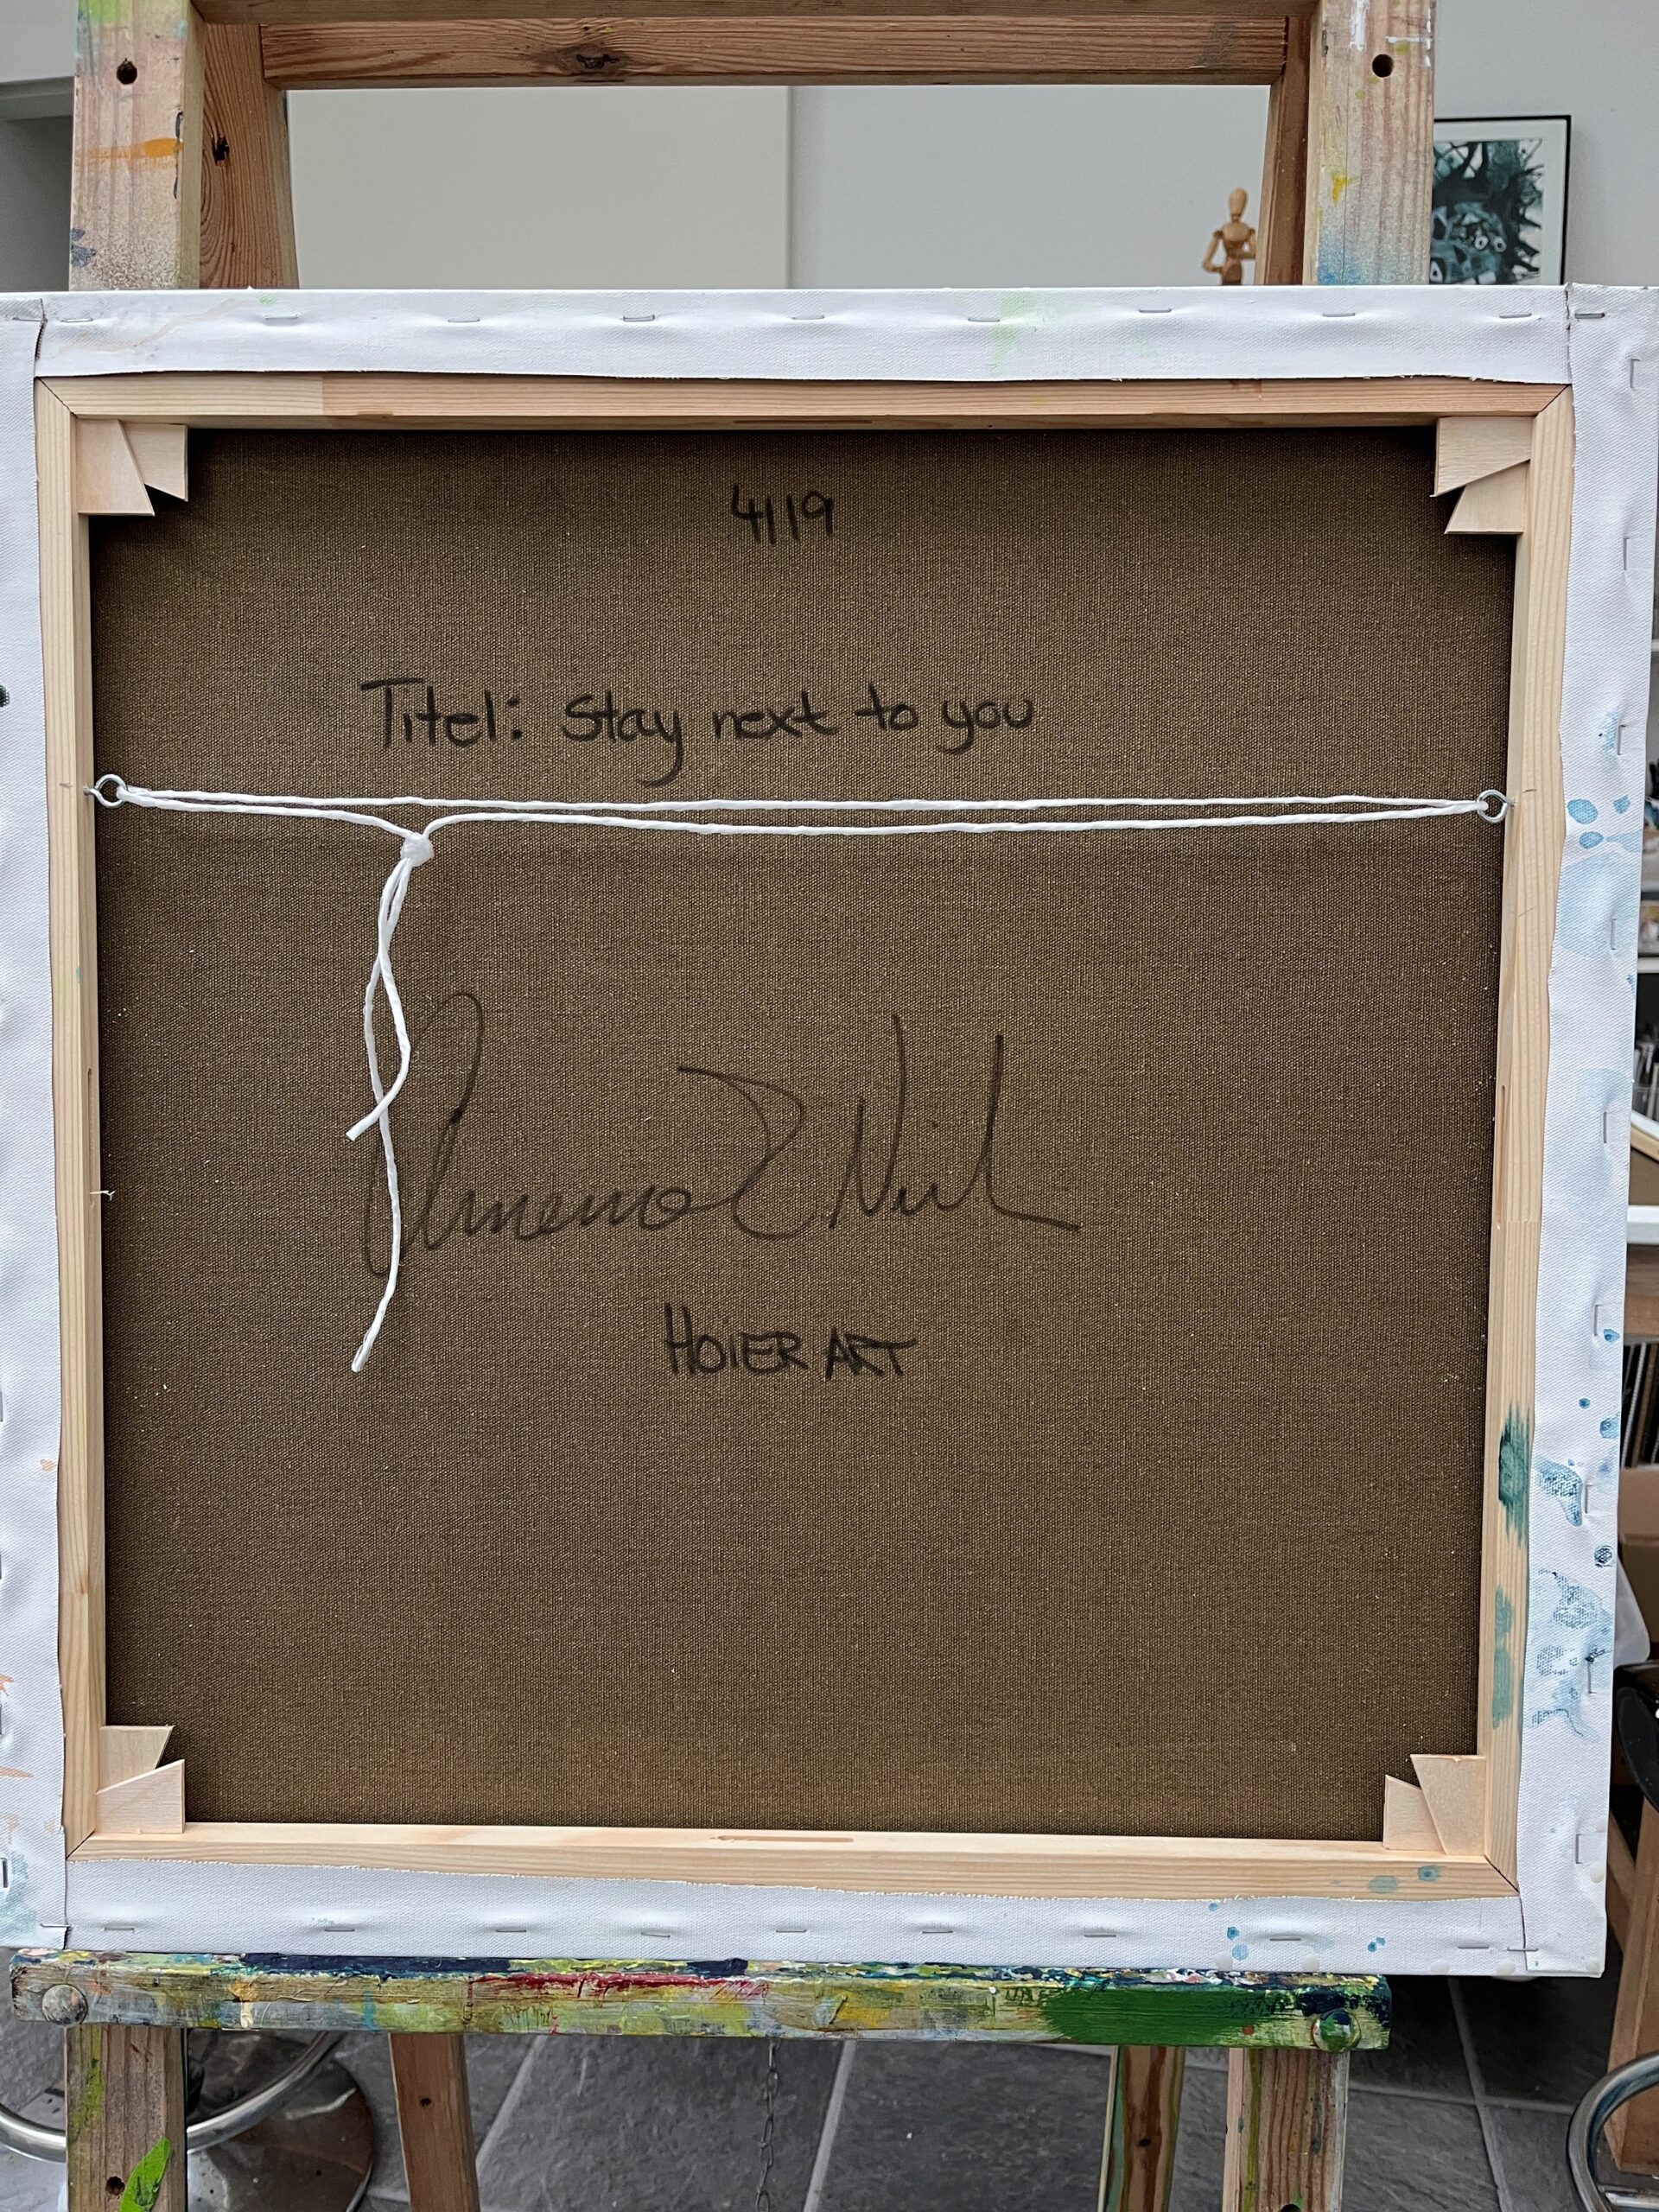 4119
Titel: Stay next to you
HOIER ART